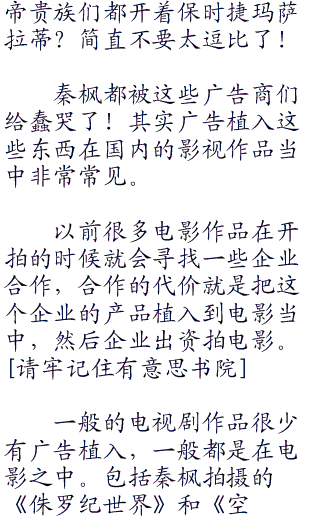 帝贵族们都开着保时捷玛萨
拉蒂？简直不要太逗比了！
秦枫都被这些广告商们
给蠢哭了！其实广告植入这
些东西在国内的影视作品当
中非常常见。
以前很多电影作品在开
拍的时候就会寻找一些企业
合作，合作的代价就是把这
个企业的产品植入到电影当
中，然后企业出资拍电影。
[请牢记住有意思书院]
一般的电视剧作品很少
有广告植入，一般都是在电
影之中。包括秦枫拍摄的
《侏罗纪世界》和《空